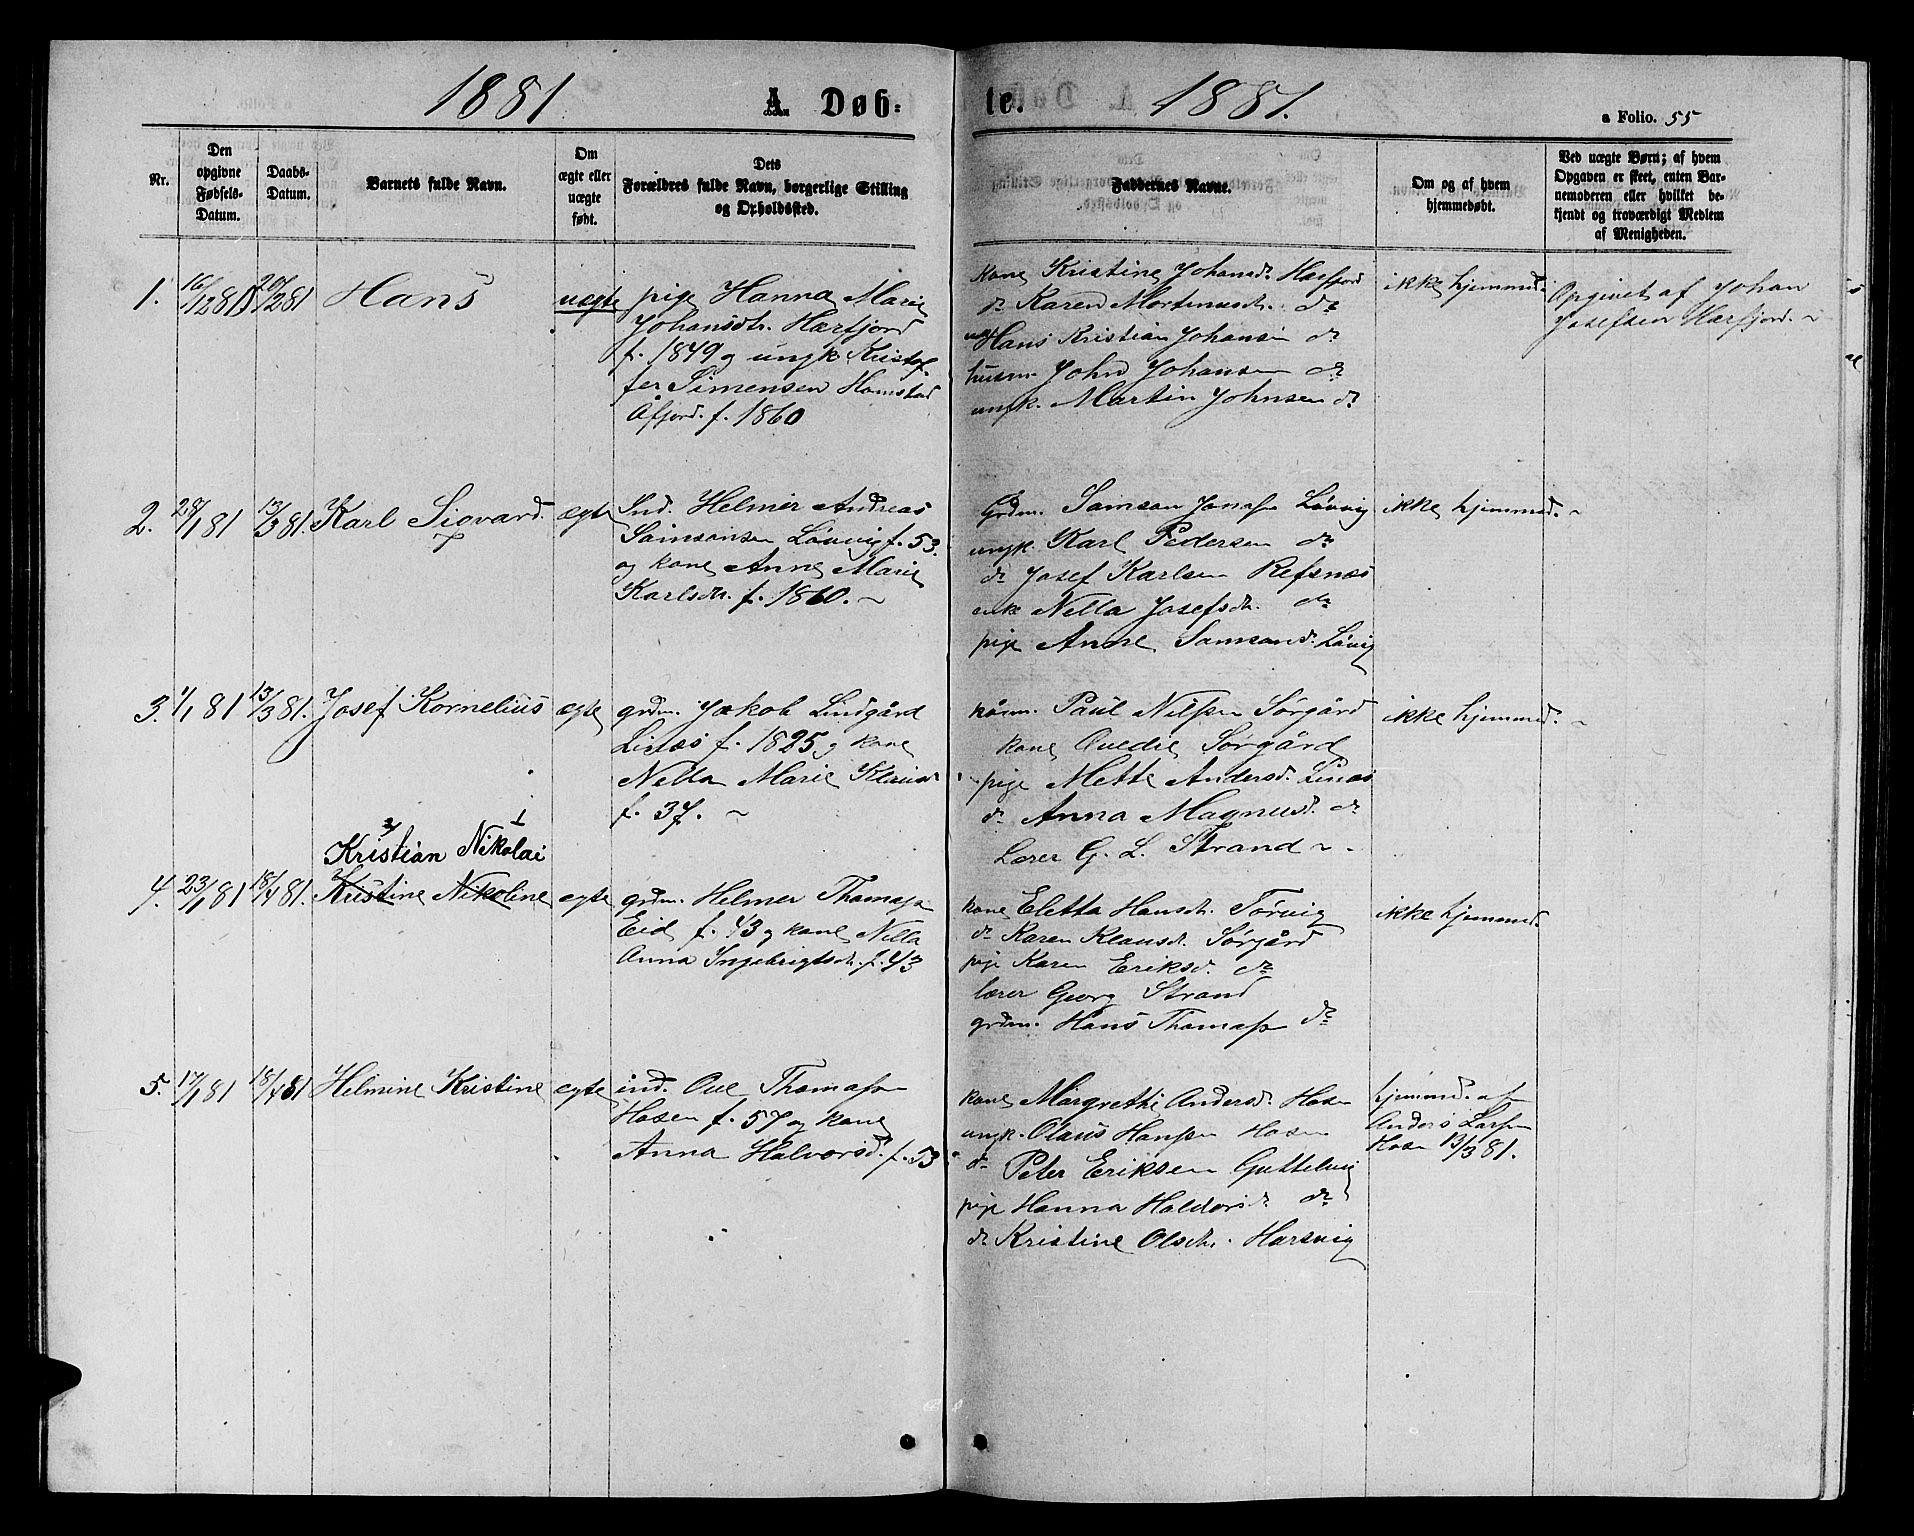 1881 A. Døb-
te. 1881.
a Folio. 55
Nr.
Den
opgivne
Fødsels-
Datum.
Daabs-
Datum.
Barnets fulde Navn.
Om
ægte eller
uægte
født.
Dets
Forældres fulde Navn, borgerlige Stilling
og Opholdssted.
Faddernes Navne.
Om og af hvem
hjemmedøbt.
Ved uægte Børn; af hvem
Opgaven er skeet, enten Bar-
nemoderen eller hvilket be-
kjendt og troværdigt Medlem
af Menigheden.
1. 16/12 80 20/2 81 Hans uægte pige Hanna Marie
Johansdtr. Harfjord
f. 1849 og ungk Kristof-
fer Simensen Hamstad
Åfjord. f. 1860
kone Kristine Johansd. Harfjord
do Karen Mortinusdt. do
ungk Hans Kristian Johansen do
husm John Johansen do
ungk. Martin Johnsen do
ikke hjemmed.
Opgivet af Johan
Josefsen Harfjord. ~
2. 28/1 81 13/3 81. Karl Sigvard. ægte Ind. Helmer Andreas
Samsonsen Lövvig f. 53.
og kone Anne Marie
Karlsdt. f. 1860. ~
Grdm. Samson Jonass Lövvig
ungk. Karl Pedersen do
do Josef Karlsen Refsnæs
enke Nella Josefsdt. do
pige Anne Samsond. Lövig
ikke hjemmed. ~
3. 1/1 81 13/3 81. Josef Kornelius ægte grdm. Jakob Lindgård
Linæs f. 1825 og kone
Nella Marie Klausd
f. 37. ~
kårm. Paul Nilssen Sørgård
kone Ovedie Sørgård
pige Mette Andersd. Linæs
do Anna Magnusd. do
Lærer G. L. Strand ~
ikke hjemmed. ~
2 1
Kristian Nikolai
4. 23/1 81 18/4 81. Kristine Nikoline ægte grdm. Helmer Thomass
Eid f. 43 og kone Nella
Anna Ingebrigtsdt. f. 43
kone Eletta Hansdt. Törvig
do Karen Klausdt. Sørgård
pige Karen Eriksd. do
lærer Georg Strand
grdm. Hans Thomass do
ikke hjemmed.
5. 17/1 81 18/4 81 Helmine Kristine ægte ind. Ove Thomass
Hosen f. 57 og kone
Anna Halvorsd. f. 53
kone Margrethe Andersd. Hosen
ungk. Olaus Hanssen Hosen
do Peter Eriksen Guttelvig
pige Hanna Haldorsd. do
do Kristine Olsdt. Harsvig
hjemmed. af
Anders Larsen
Hosen 13/3 81.